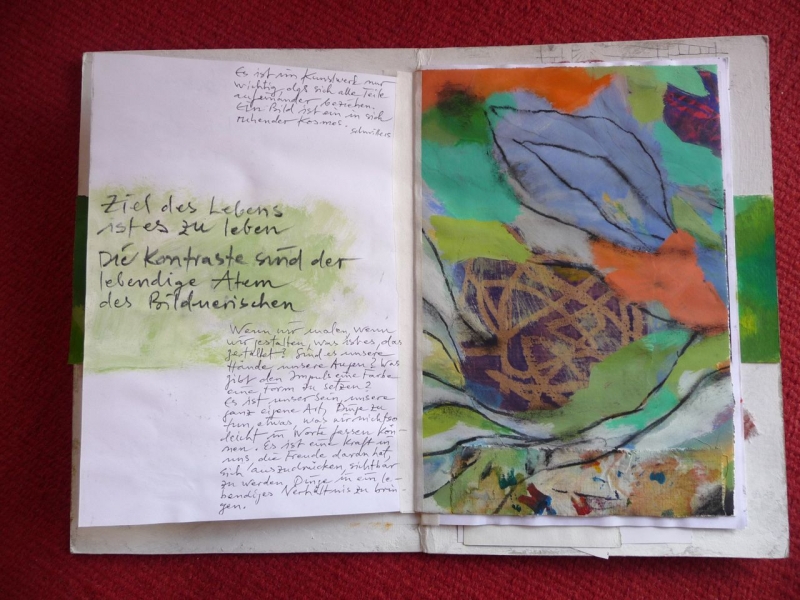 Es ist im Kunstwerk nur
wichtig, das sich alle Teile
aufeinander beziehen.
Ein Bild ist ein in sich
ruhender Kosmos.
Ziel des Lebens
ist es zu leben
Die Kontraste sind der
lebendige Atem
des Bildnerischen
Wenn wir malen, wenn
wir gestalten, was ist es, das
gestaltet? Sind es unsere
Hände, unsere Augen? Was
gibt den Impuls eine Farbe
eine Form zu setzen?
Es ist unser Sein, unsere
ganz eigene Art, Dinge zu
tun, etwas, was wir nicht so
leicht in Worte fassen kön-
nen. Es ist eine Kraft in
uns, die Freude daran hat,
sich auszudrücken, sichtbar
zu werden, Dinge in ein le-
bendiges Verhältnis zu brin-
gen.